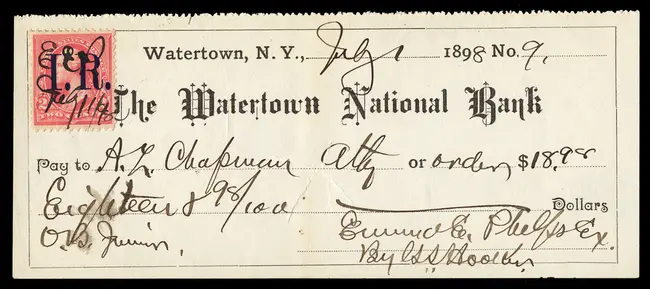 Watertown, N. Y., July 1 1898 No. 9.
I.R.
The Watertown National Bank
Pay to A. L. Chapman Atty or order, $18.98
Eighteen & 98/100 Dollars
O.B. Emma E. Phelps Ex.
By